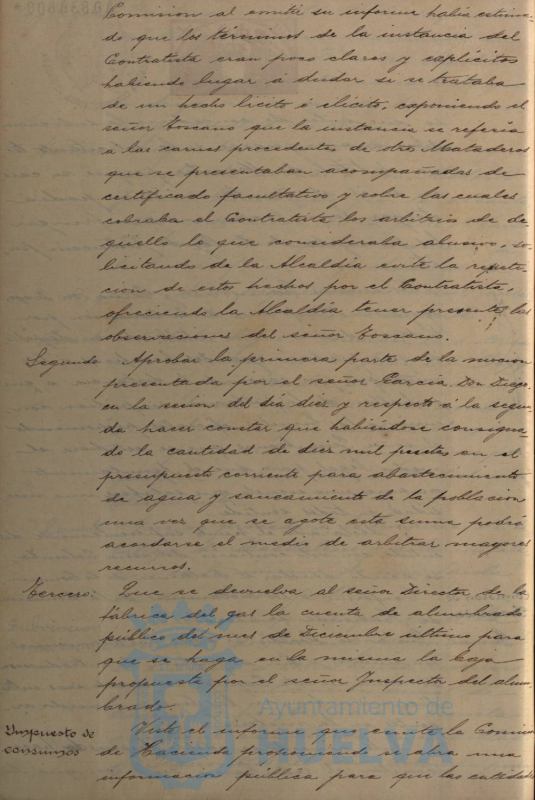 Comision al emitir su informe habia estima-
do que los términos de la instancia del
Contratista eran poco claros y explícitos
habiendo lugar á dudar si se trataba
de un hecho licito é ilícito, exponiendo el
señor Toscano que la instancia se referia
á las carnes procedentes de otros Mataderos
que se presentaban acompañadas de
certificado facultativo y sobre las cuales
cobraba el Contratista los arbitrios de de-
güello lo que consideraba abusivo, so-
licitando de la Alcaldía evite la repeti-
cion de estos hechos por el Contratista,
ofreciendo la Alcaldía tener presentes las
observaciones del señor Toscano.
Segundo Aprobar la primera parte de la mocion
presentada por el señor Garcia Don Diego,
en la sesion del día diez y respecto á la segun-
da hacer constar que habiéndose consigna-
do la cantidad de diez mil pesetas en el
presupuesto corriente para abastecimiento
de agua y saneamiento de la poblacion
una vez que se agote esta suma podrá
acordarse el medio de arbitrar mayores
recursos.
Tercero: Que se devuelva al señor Director de la
fábrica del gas la cuenta de alumbrado
público del mes de Diciembre último para
que se haga en la misma la baja
propuesta por el señor Inspector del alum-
brado.
Impuesto de consumos
Visto el informe que emite la Comision
de Hacienda proponiendo se abra una
informacion pública para que las entidades
Ayuntamiento de
HUELVA